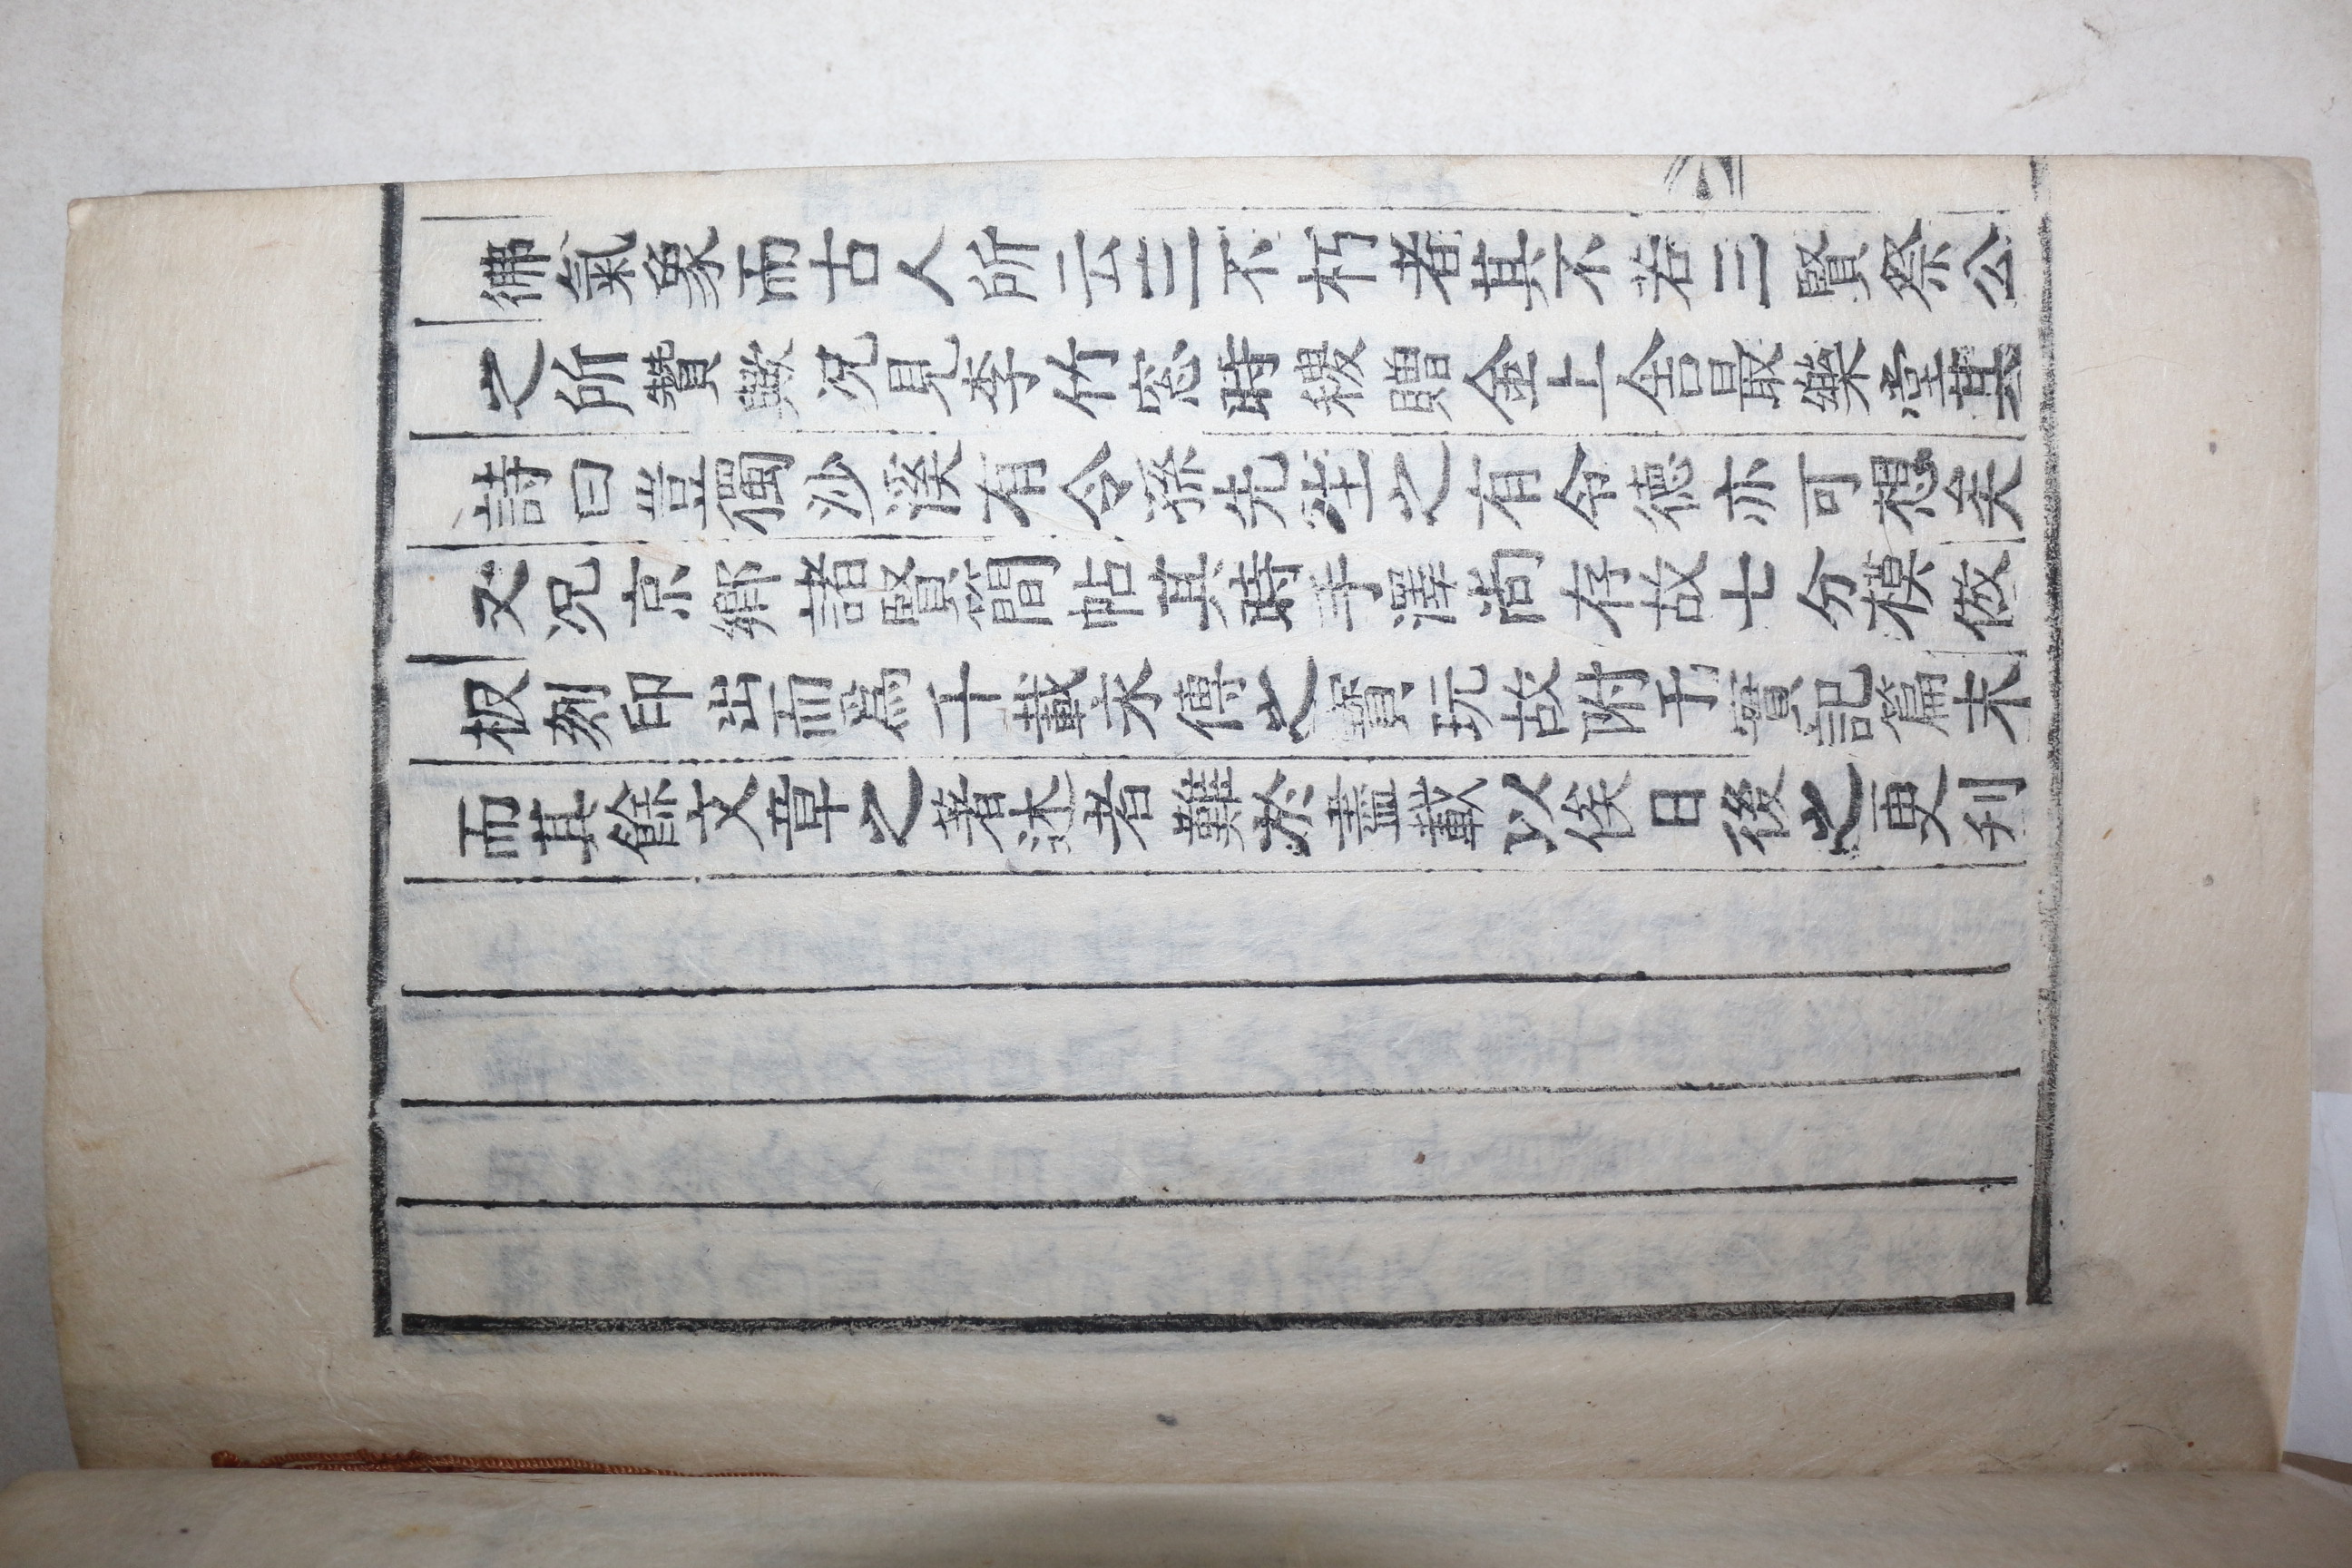 彿氣象而古人所云三不朽者其不若三賢祭公
之所贊歟況見李竹窓時稷贈金上舍最樂堂其
詩曰豈獨沙溪有令孫先生之有令德亦可想矣
又況京鄉諸賢簡帖其時手澤尚存故七分模倣
板刻印出而爲千載永傳之寶玩故附于實記篇末
而其餘文章之著述者難於盡載以俟日後之更刊